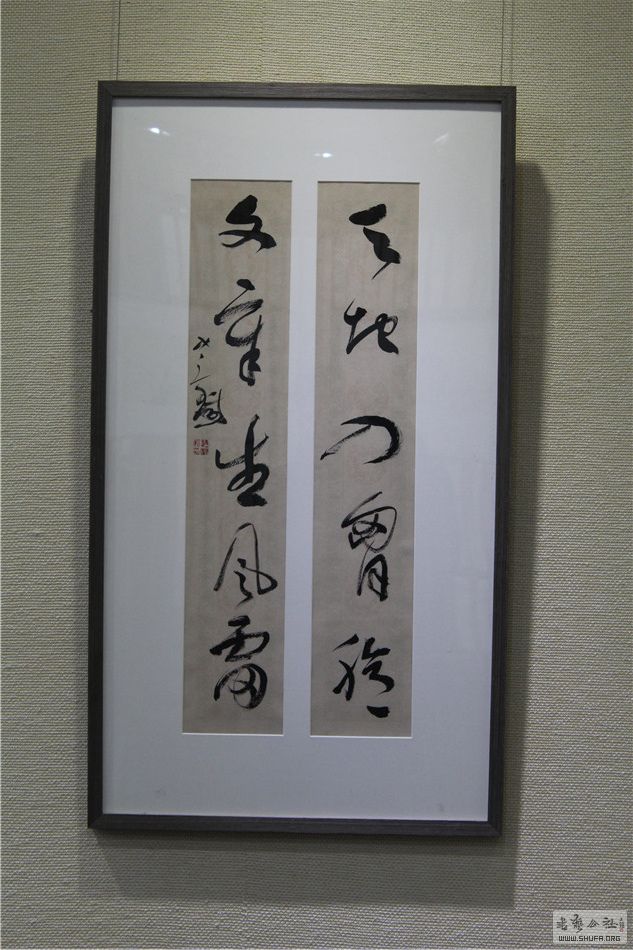 天地入胃脸
文章生风雷
书艺公社
WWW.SHUFA.ORG